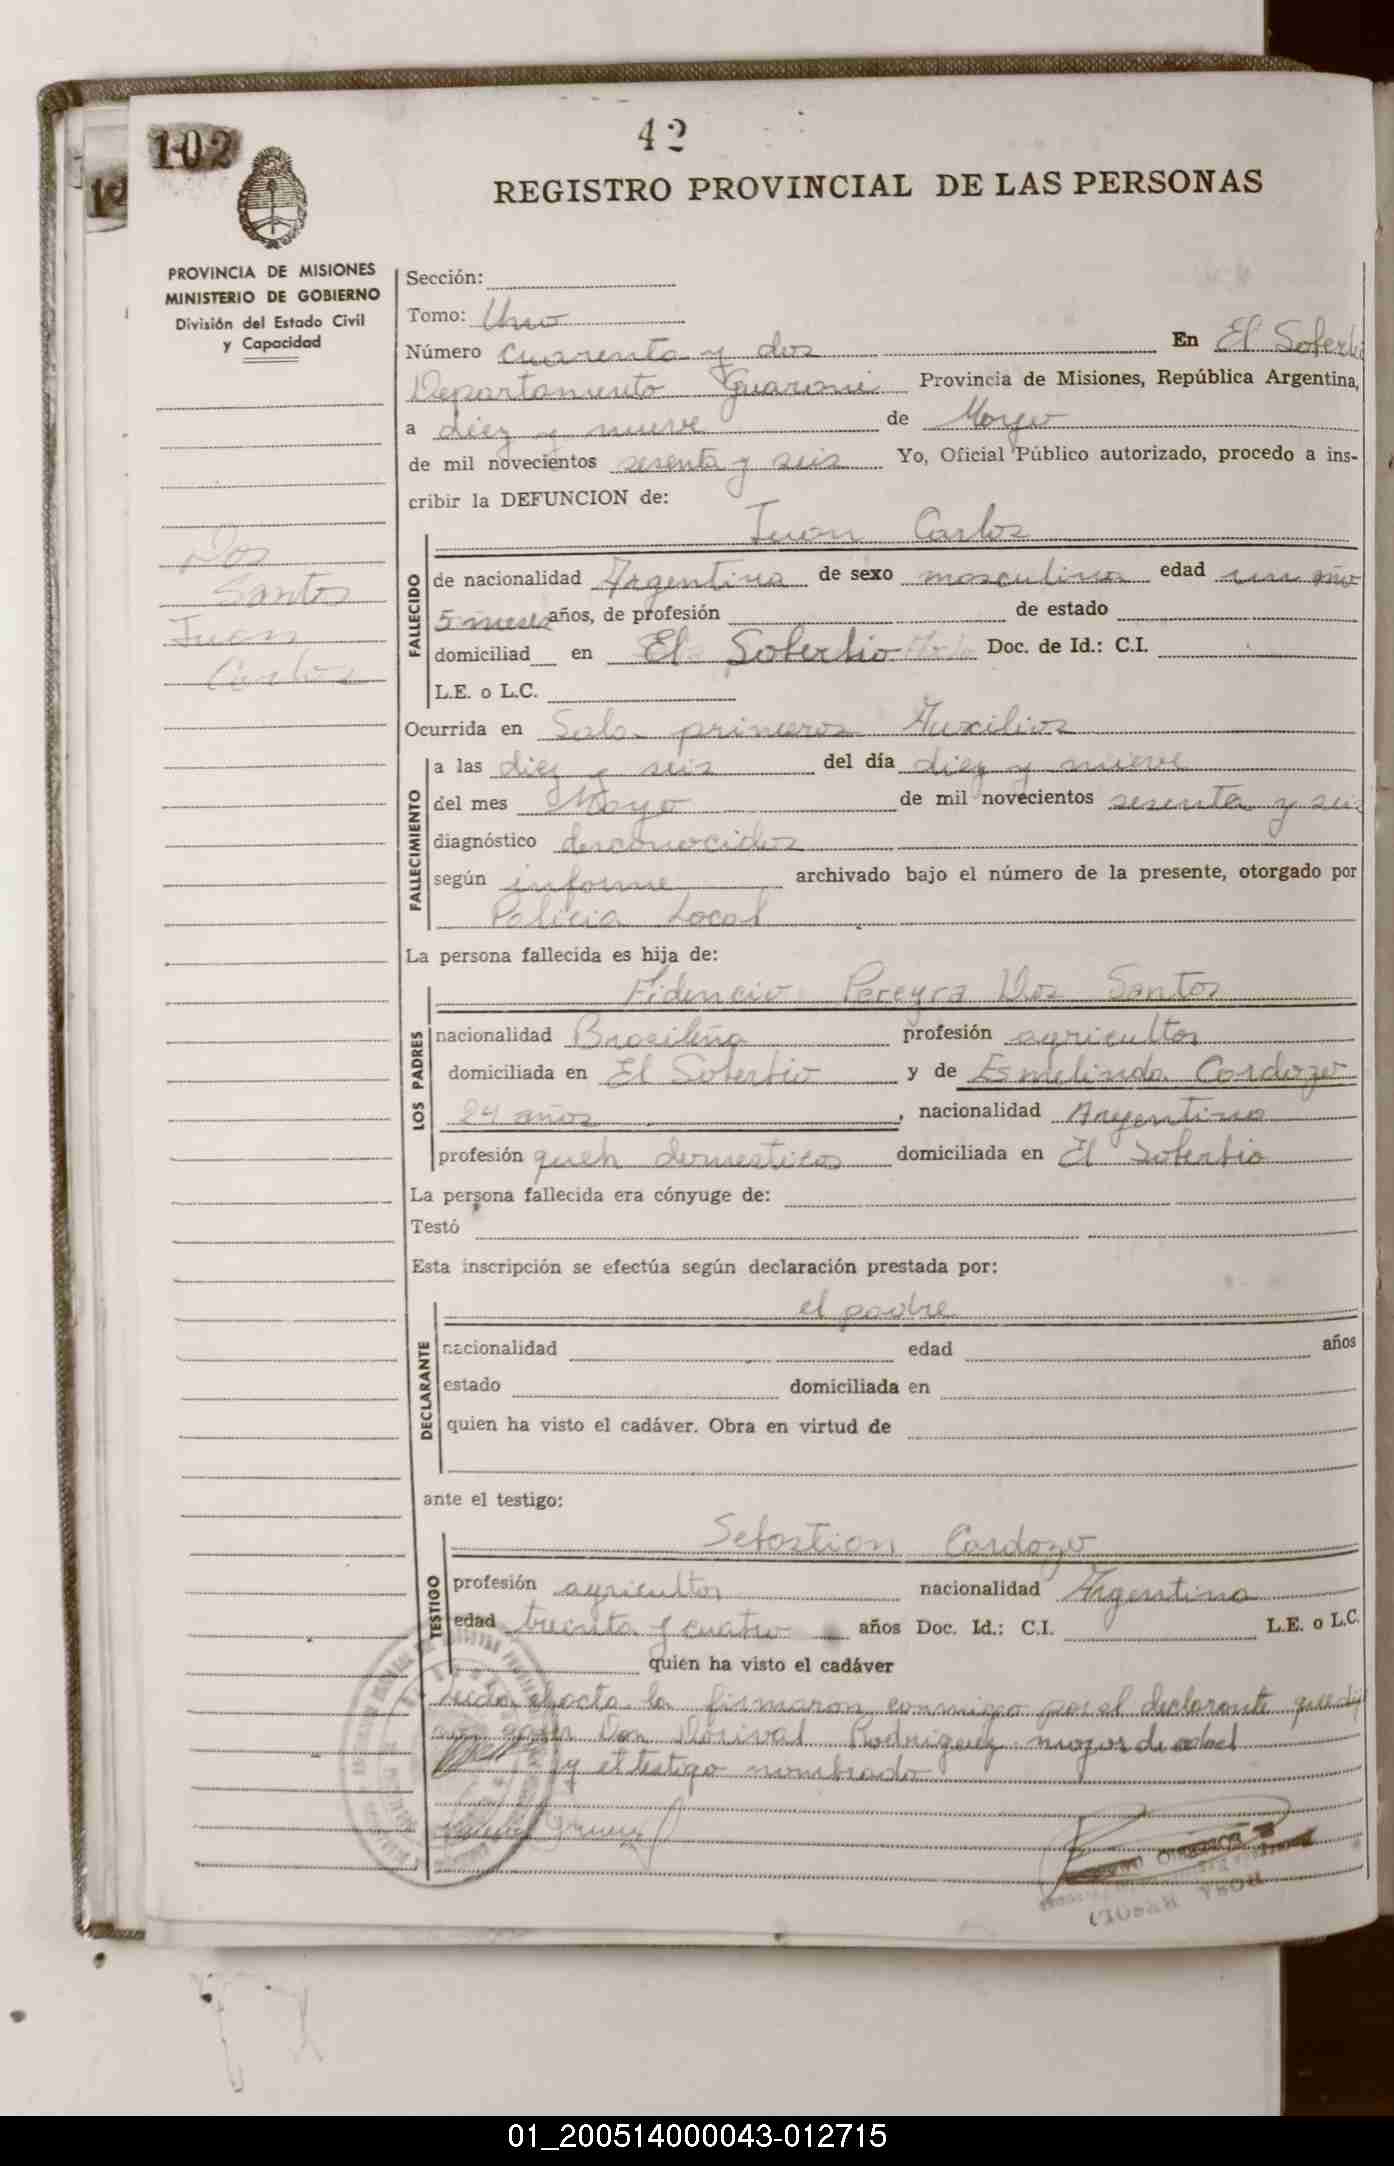 102
42
REGISTRO PROVINCIAL DE LAS PERSONAS
PROVINCIA DE MISIONES
MINISTERIO DE GOBIERNO
División del Estado Civil
y Capacidad
Dos
Santos
Juan
Carlos
Sección:
Tomo: Uno
Número cuarenta y dos En El Soberbio
Departamento Guarani Provincia de Misiones, República Argentina,
a diez y nueve de Mayo
de mil novecientos sesenta y seis Yo, Oficial Público autorizado, procedo a ins-
cribir la DEFUNCION de:
Juan Carlos
FALLECIDO
de nacionalidad Argentina de sexo masculino edad un año
5 meses años, de profesión de estado
domiciliad en El Soberbio Doc. de Id.: C.I.
L.E. o L.C.
Ocurrida en Sala primeros Auxilios
FALLECIMIENTO
a las diez y seis del día diez y nueve
del mes Mayo de mil novecientos sesenta y seis
diagnóstico desconocidos
según informe archivado bajo el número de la presente, otorgado por
Policia Local
La persona fallecida es hija de:
Fidencio Pereyra Dos Santos
LOS PADRES
nacionalidad Brasileña profesión agricultor
domiciliada en El Soberbio y de Esmelinda Cardozo
24 años, nacionalidad Argentina
profesión queh domesticos domiciliada en El Soberbio
La persona fallecida era cónyuge de:
Testó
Esta inscripción se efectúa según declaración prestada por:
el padre
DECLARANTE
nacionalidad edad años
estado domiciliada en
quien ha visto el cadáver. Obra en virtud de
ante el testigo:
Sebastian Cardozo
TESTIGO
profesión agricultor nacionalidad Argentina
edad treinta y cuatro años Doc. Id.: C.I. L.E. o L.C.
quien ha visto el cadáver
acta la firmaron conmigo por el declarante que
Don Dorival Rodriguez mayor de edad
y el testigo nombrado
01_200514000043-012715